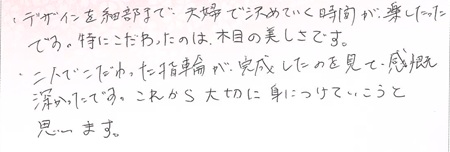 ・デザインを細部まで、夫婦で決めていく時間が、楽しかった
です。特にこだわったのは、木目の美しさです。
・二人でこだわった指輪が、完成したのを見て、感慨
深かったです。これから大切に身につけていこうと
思います。